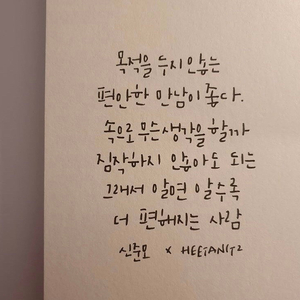 목적을 두지 않는
편안한 만남이 좋다.
속으로 무슨 생각을 할까
짐작하지 않아도 되는
그래서 알면 알수록
더 편해지는 사람
신준모 x